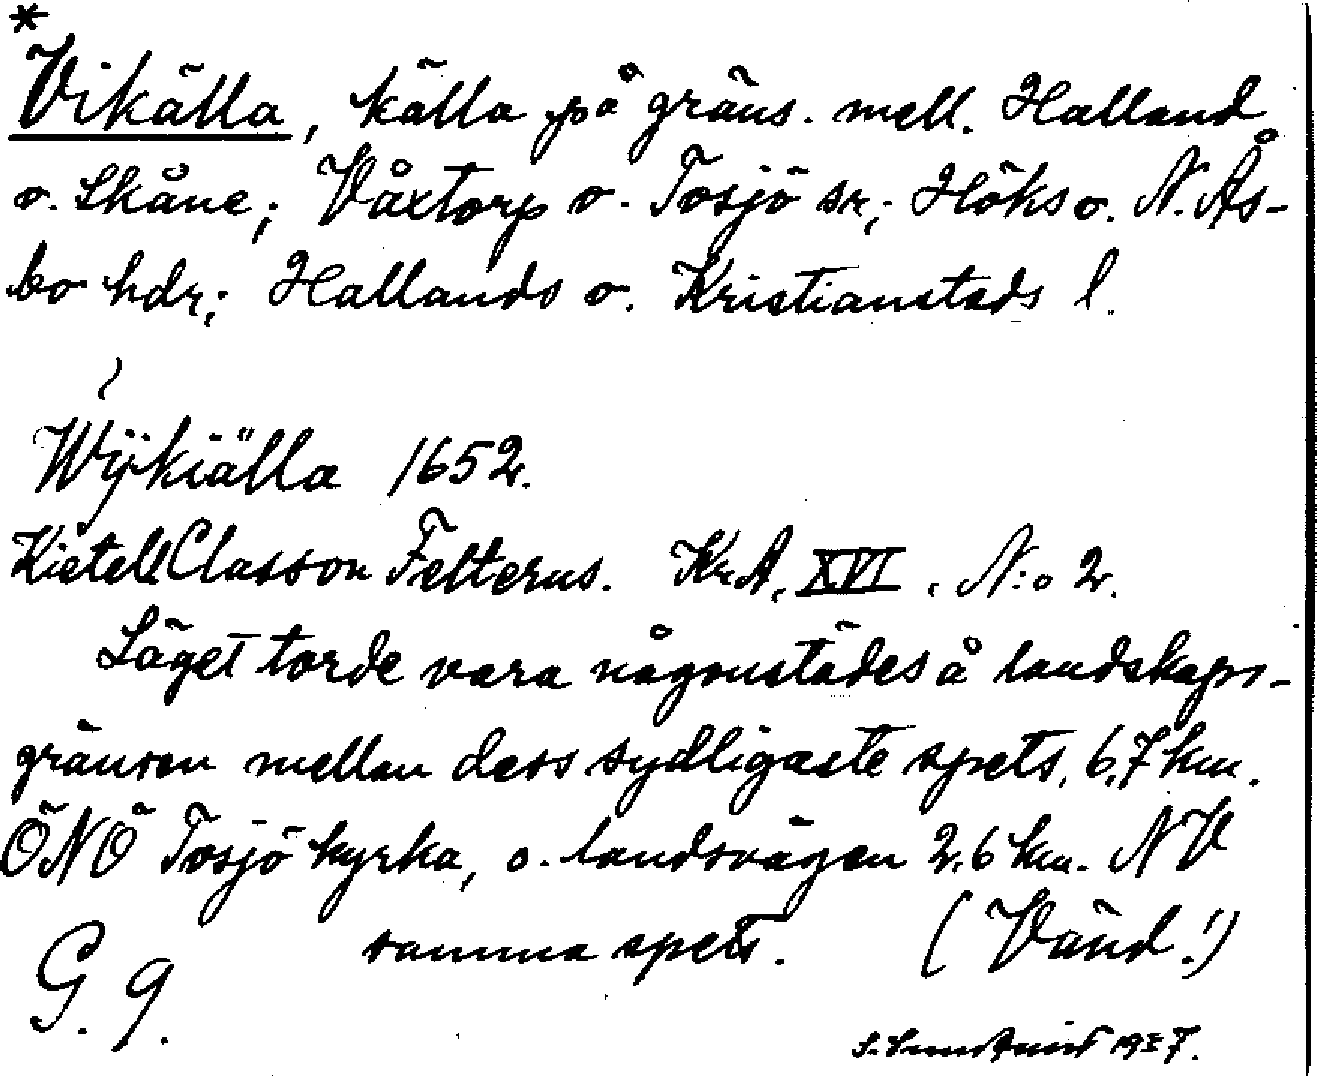 *
Vikälla, källa på gräns. mell. Halland
o. Skåne; Våxtorp o. Tosjö sr; Höks o. N. Ås-
bo hdr; Hallands o. Kristianstads l.
~
Wÿkiälla 1652.
Kietell Classon Felterus. Kr.A. XVI. N:o 2.
Läget torde vara någonstädes å landskaps-
gränsen mellan dess sydligaste spets, 6,7 km.
ÖNÖ Tosjö kyrka, o. landsvägen 2,6 km. NV
samma spets. (Vänd!)
G. 9.
1937.